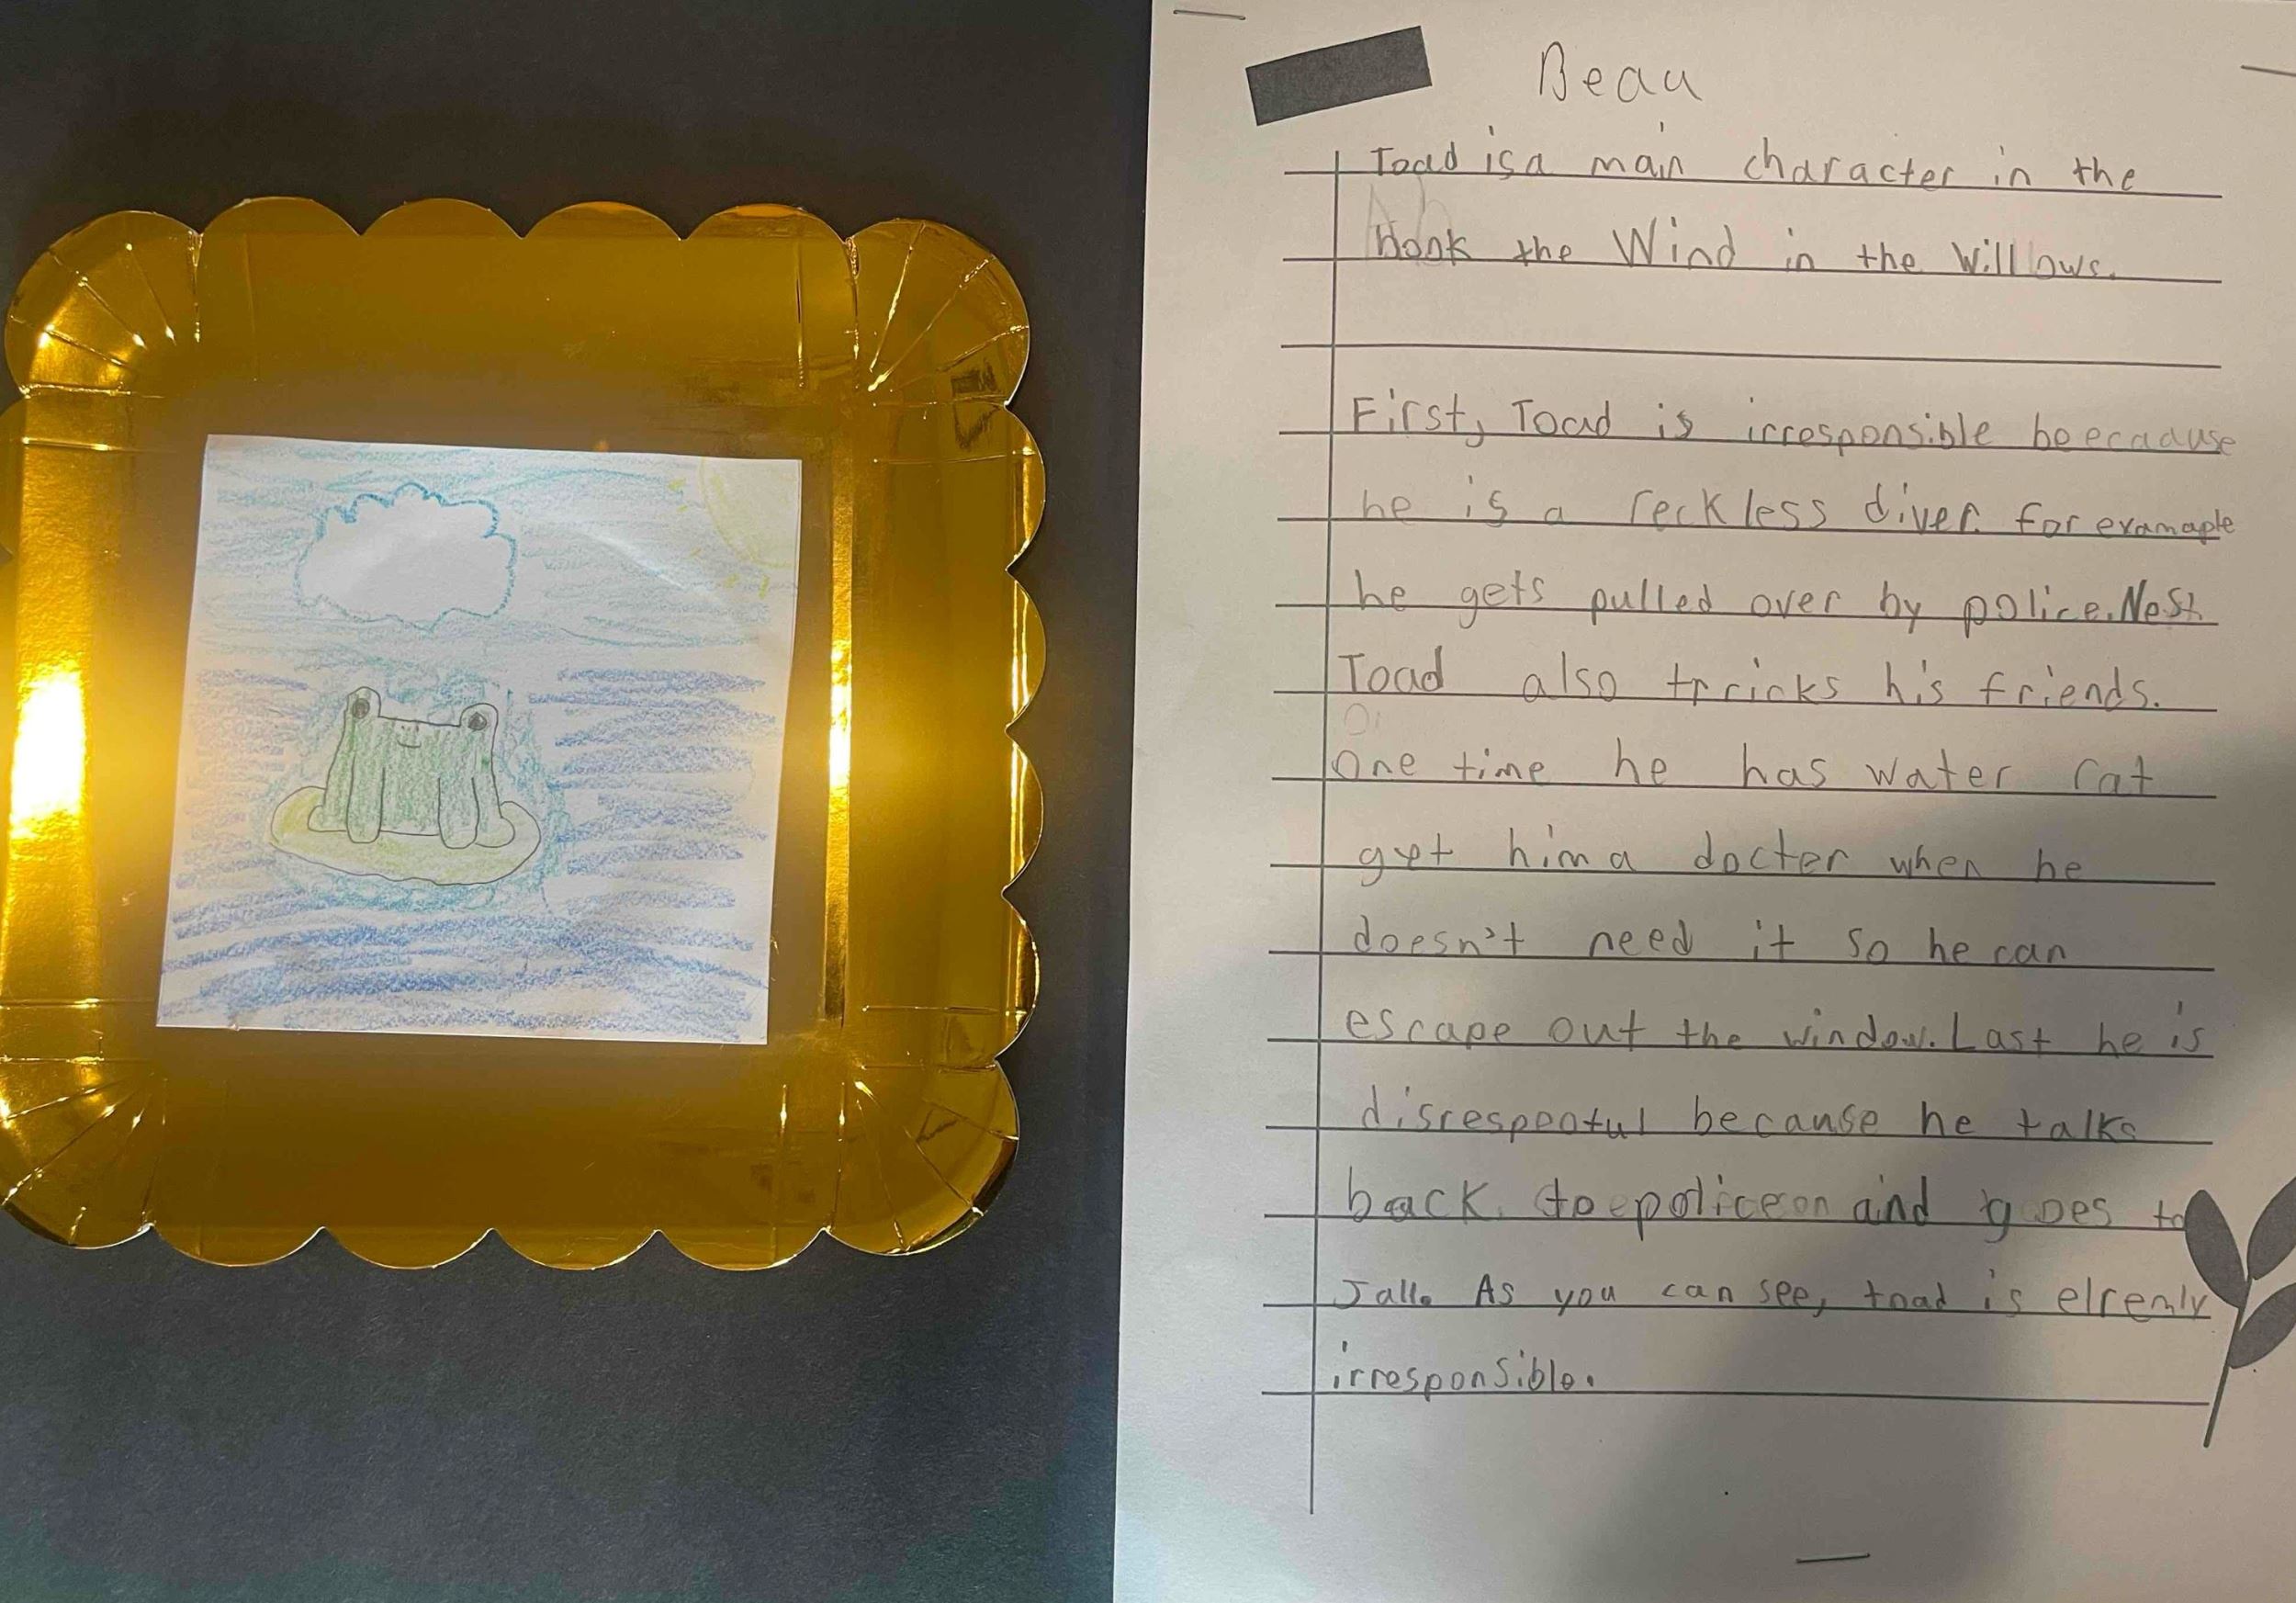 Beau
Toad is a main character in the
book the Wind in the Willows.
First, Toad is irresponsible beecaduse
he is a reckless diver. for examaple
he gets pulled over by police. Nest
Toad also trricks his friends.
One time he has water rat
get him a docter when he
doesn't need it so he can
escape out the window. Last he is
disrespectful because he talks
back to policeon and goes to
Jall. As you can see, toad is elremly
irresponsible.